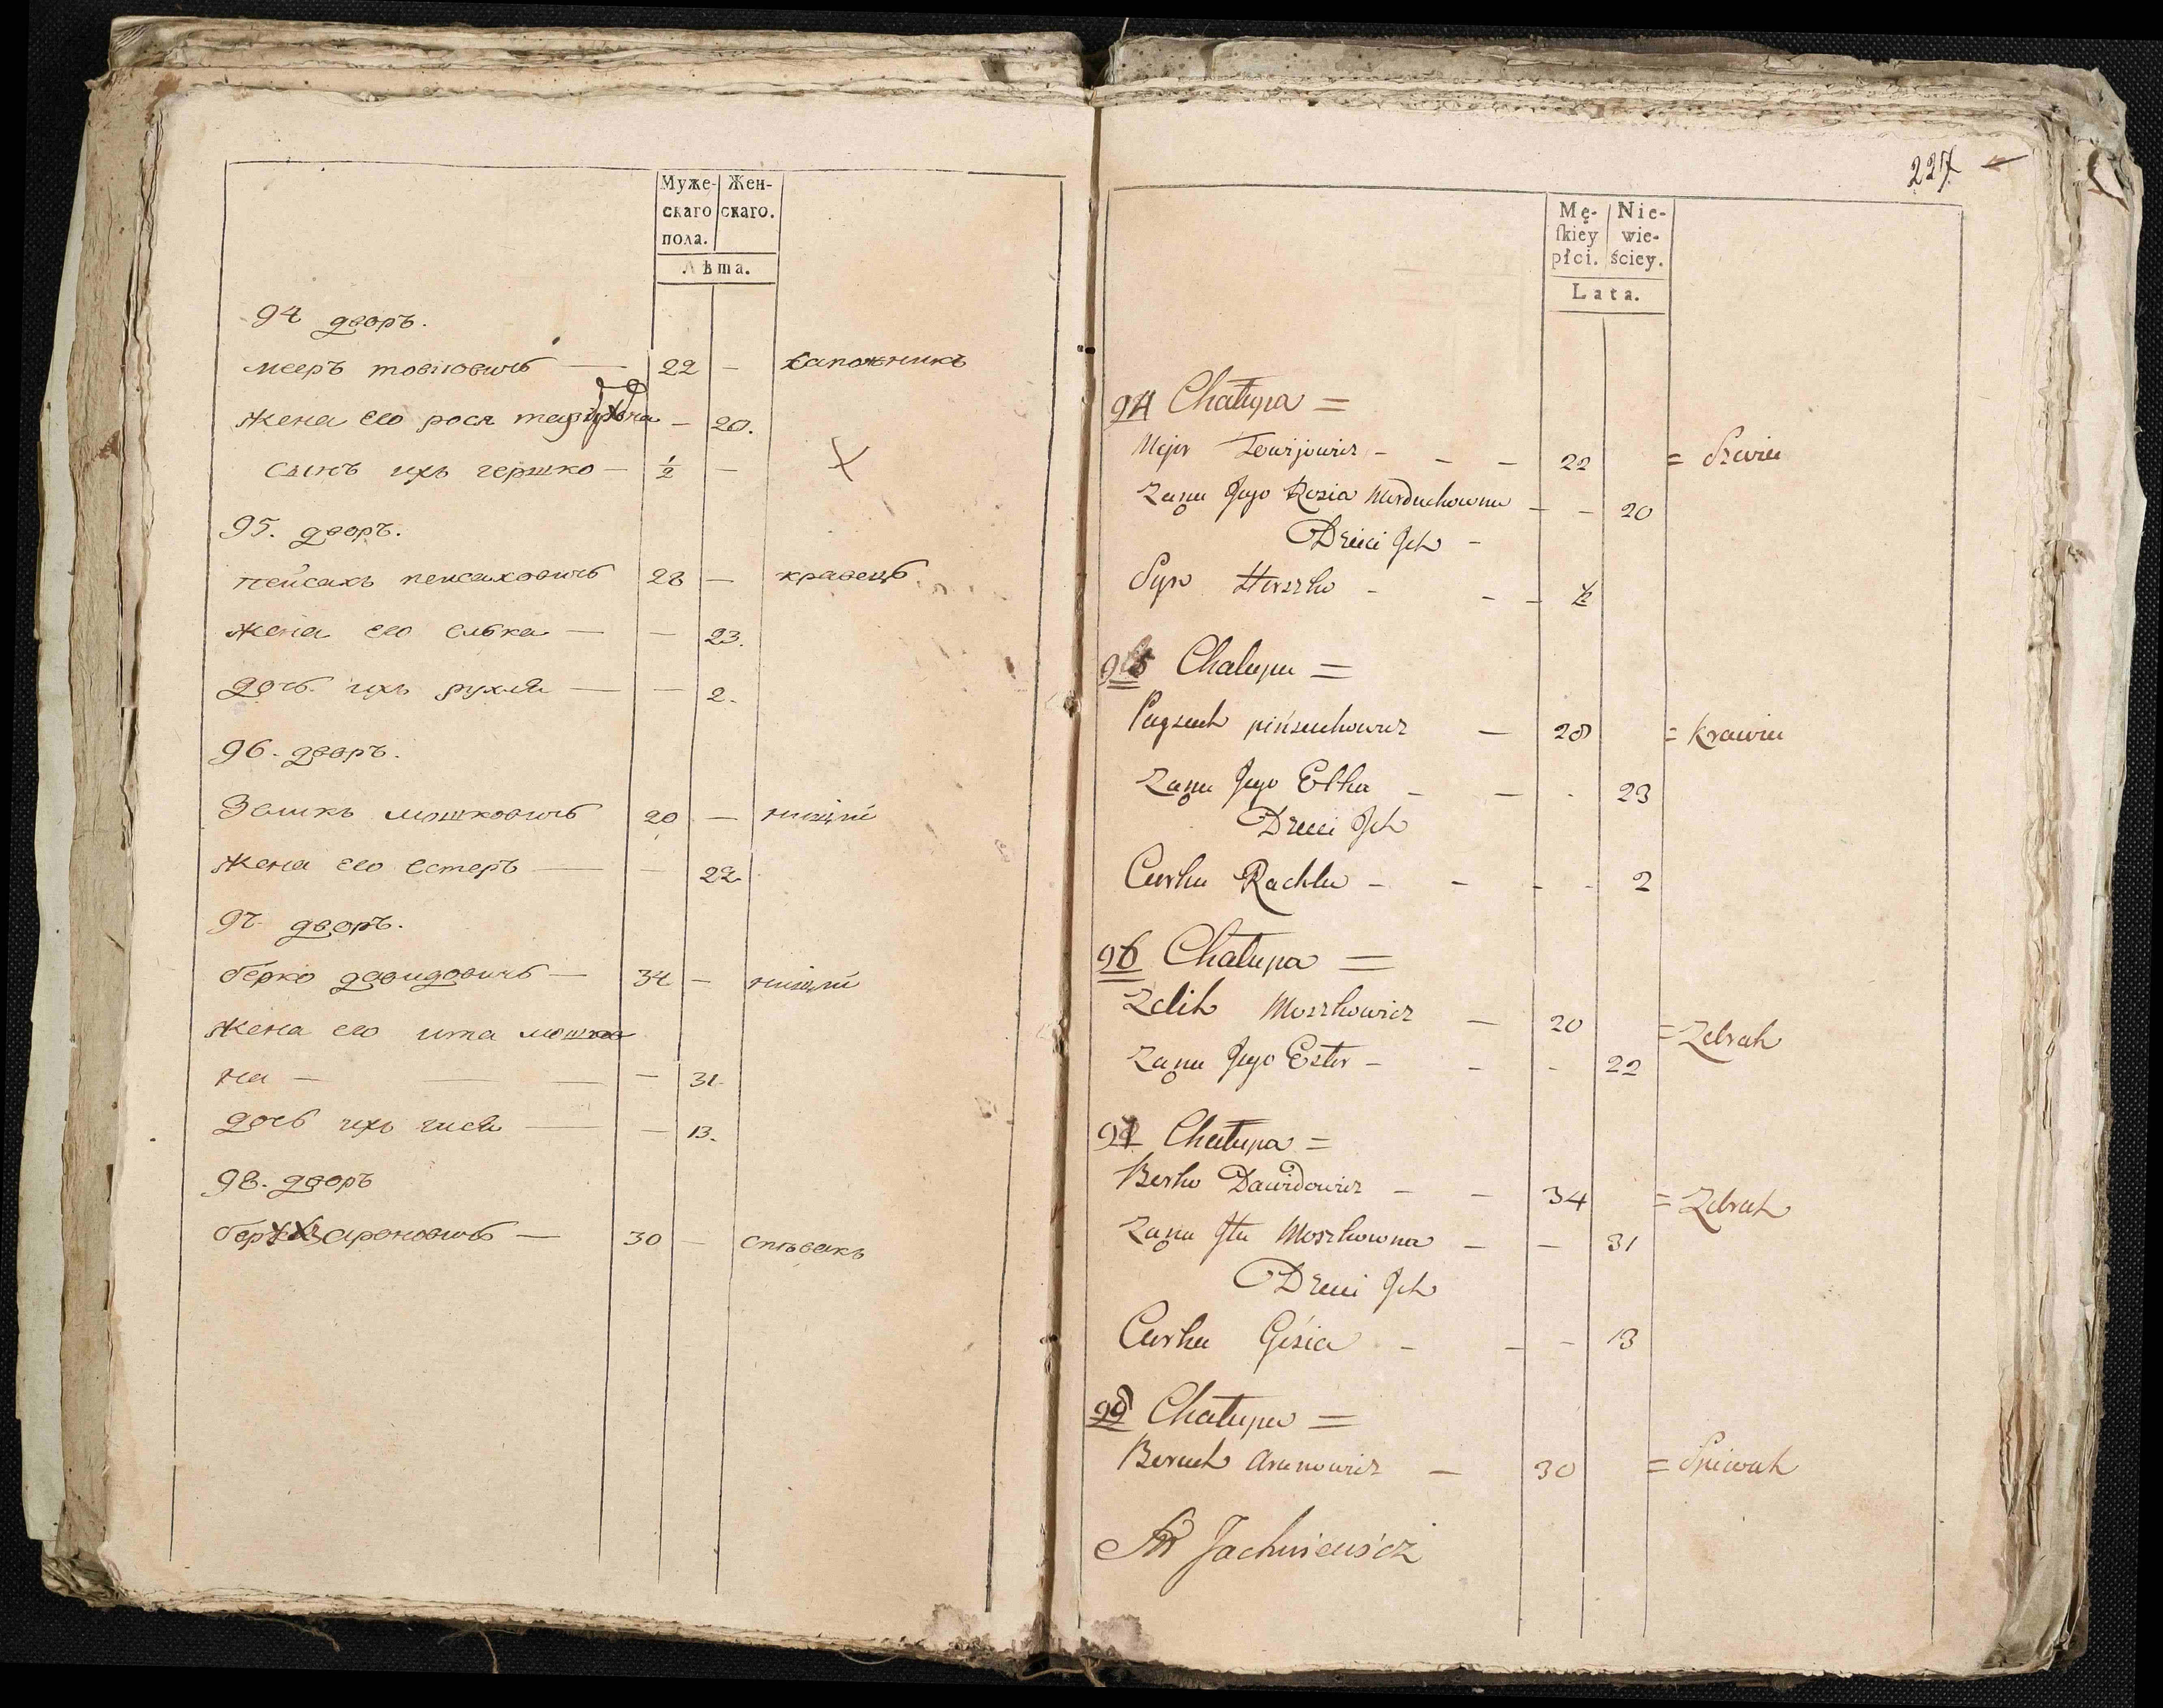 Муже- Жен-
скаго скаго.
пола.
Лѣта.
94 дворъ.
мееръ товіювичь — 22 — сапожникъ
жена его рося — 20.
сынъ ихъ гершко — ½ —
95. дворъ.
пейсахъ пейсаховичь 28 — кравецъ
жена его елька — — 23.
дочь ихъ рухля — — 2.
96. дворъ.
Зеликъ мошковичь 20 — нищій
жена его естеръ — — 22
97 дворъ.
берко давидовичь — 34 — нищій
жена его ита мошков
на — — — — 31.
дочь ихъ гися — — 13.
98. дворъ
ароновичь — 30 — спѣвакъ
227
Mę- Nie-
ſkiey wie-
płci. ściey.
Lata.
94 Chałupa =
Mejer Tewijowicz - - - 22 = Szewiec
Zona Jego Rosia Morduchowna - - 20
Dzieci Jch -
Syn Herszko - - - ½
95 Chałupa =
Paysach pińsachowicz — 28 = Krawiec
Zona Jego Elka - — - 23
Dzieci Jch
Curka Rachla - - - - 2
96 Chałupa =
Zelik Moszkowicz — 20 = Zebrak
Zona Jego Ester - - - 22
97 Chałupa =
Berko Dawidowicz - - 34 = Zebrak
Zona Jta Moszkowna - - 31
Dzieci Jch
Curka Gisia - - - 13
98 Chałupa =
Beruch Aronowicz — 30 = Spiewak
Jachniewicz